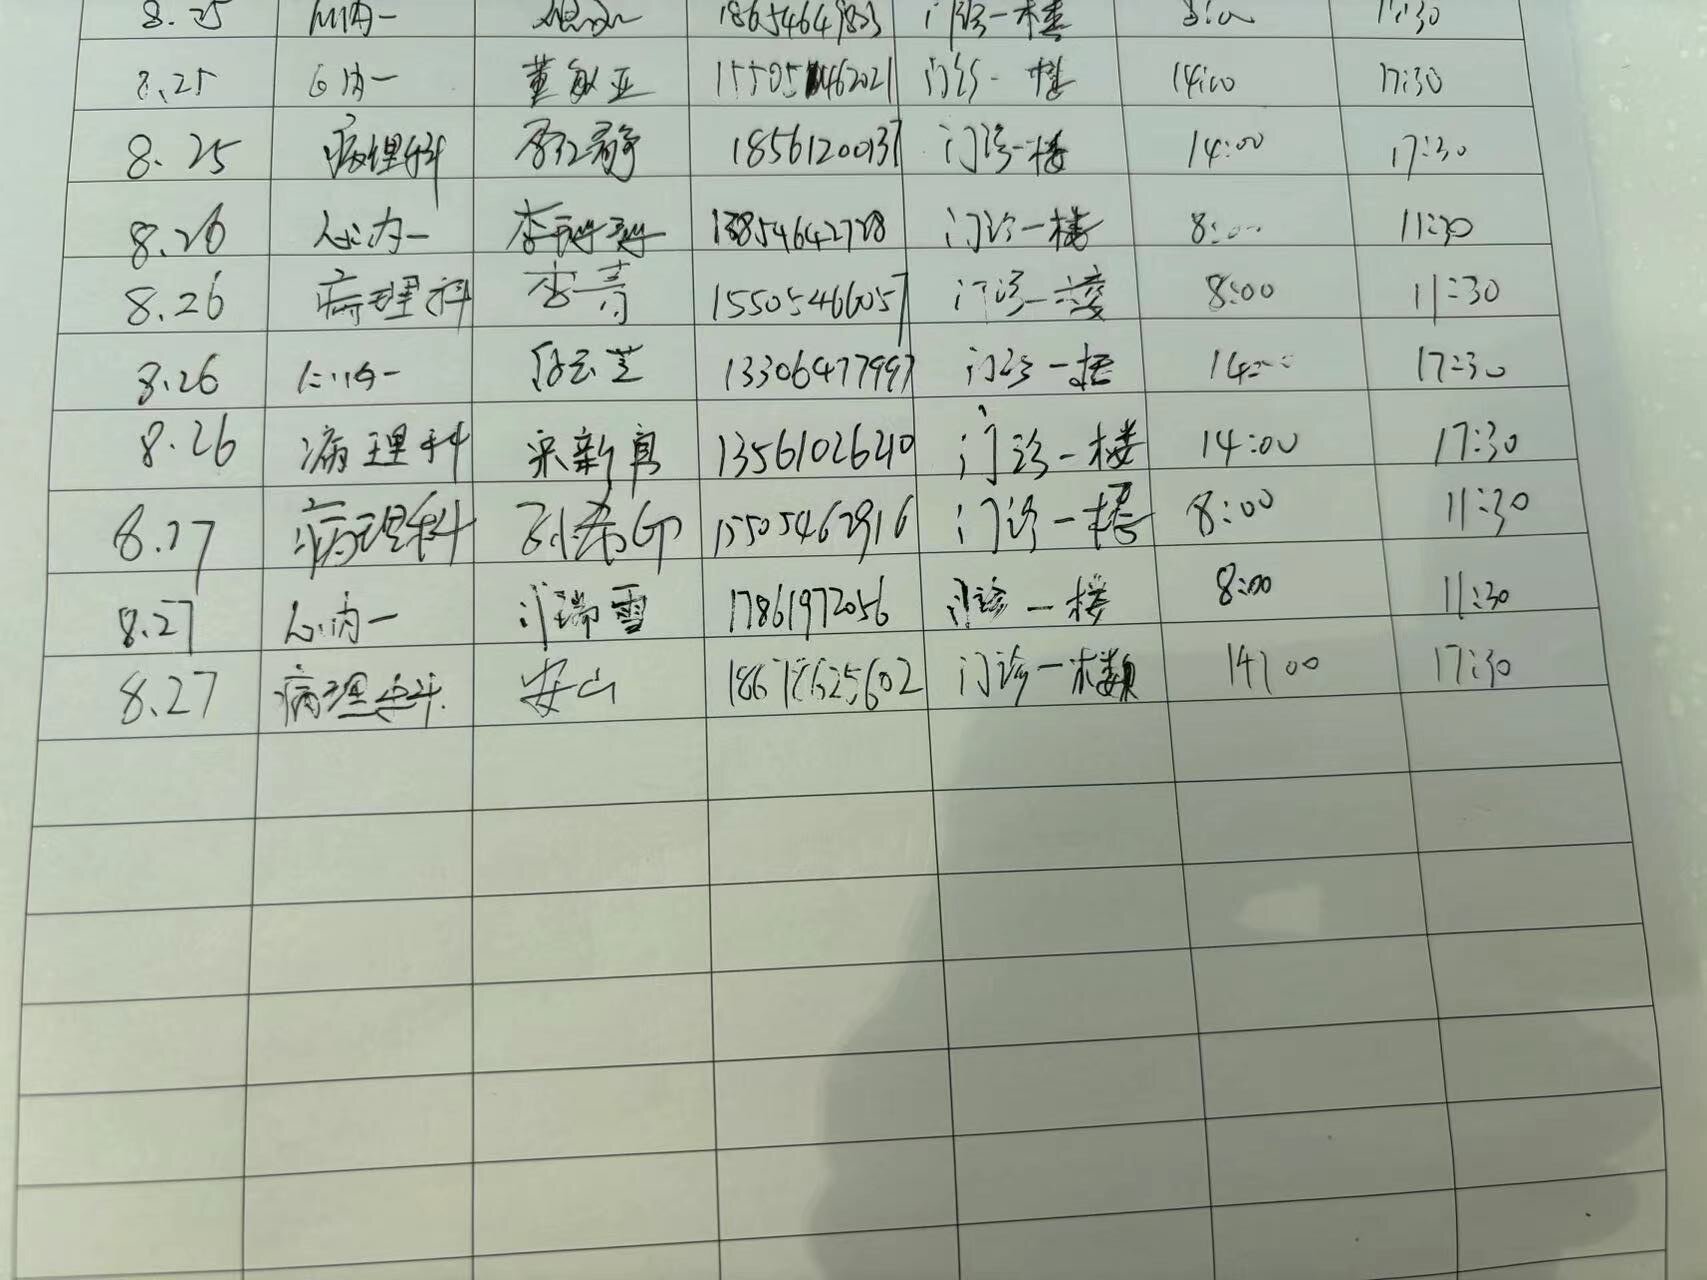 8.25 心内一 18654649823 门诊一楼 8:00 11:30
8.25 心内一 董敏亚 15505462021 门诊一楼 14:00 17:30
8.25 病理科 18561200137 门诊一楼 14:00 17:30
8.26 心内一 李珊珊 13854642728 门诊一楼 8:00 11:30
8.26 病理科 李青 15505466057 门诊一楼 8:00 11:30
8.26 心内一 13306477997 门诊一楼 14:00 17:30
8.26 病理科 宋新官 13561026210 门诊一楼 14:00 17:30
8.27 病理科 15505462916 门诊一楼 8:00 11:30
8.27 心内一 瑞雪 17861972056 门诊一楼 8:00 11:30
8.27 病理科 安山 18678625602 门诊一楼 14:00 17:30